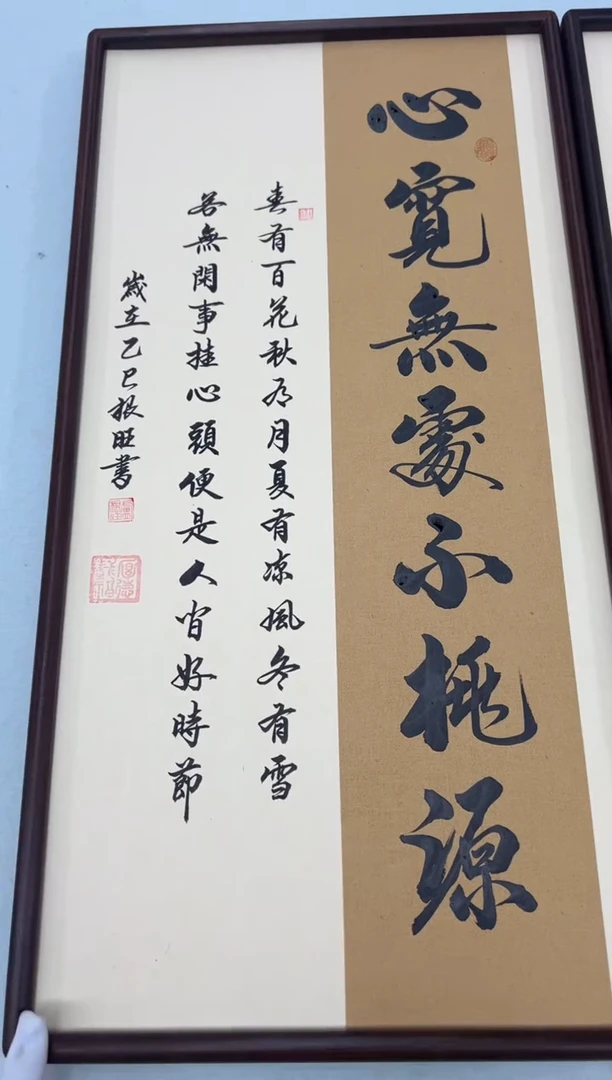 心寬無處不桃源
春有百花秋有月夏有凉風冬有雪
若無閑事挂心頭便是人間好時節
歲在乙巳根旺書